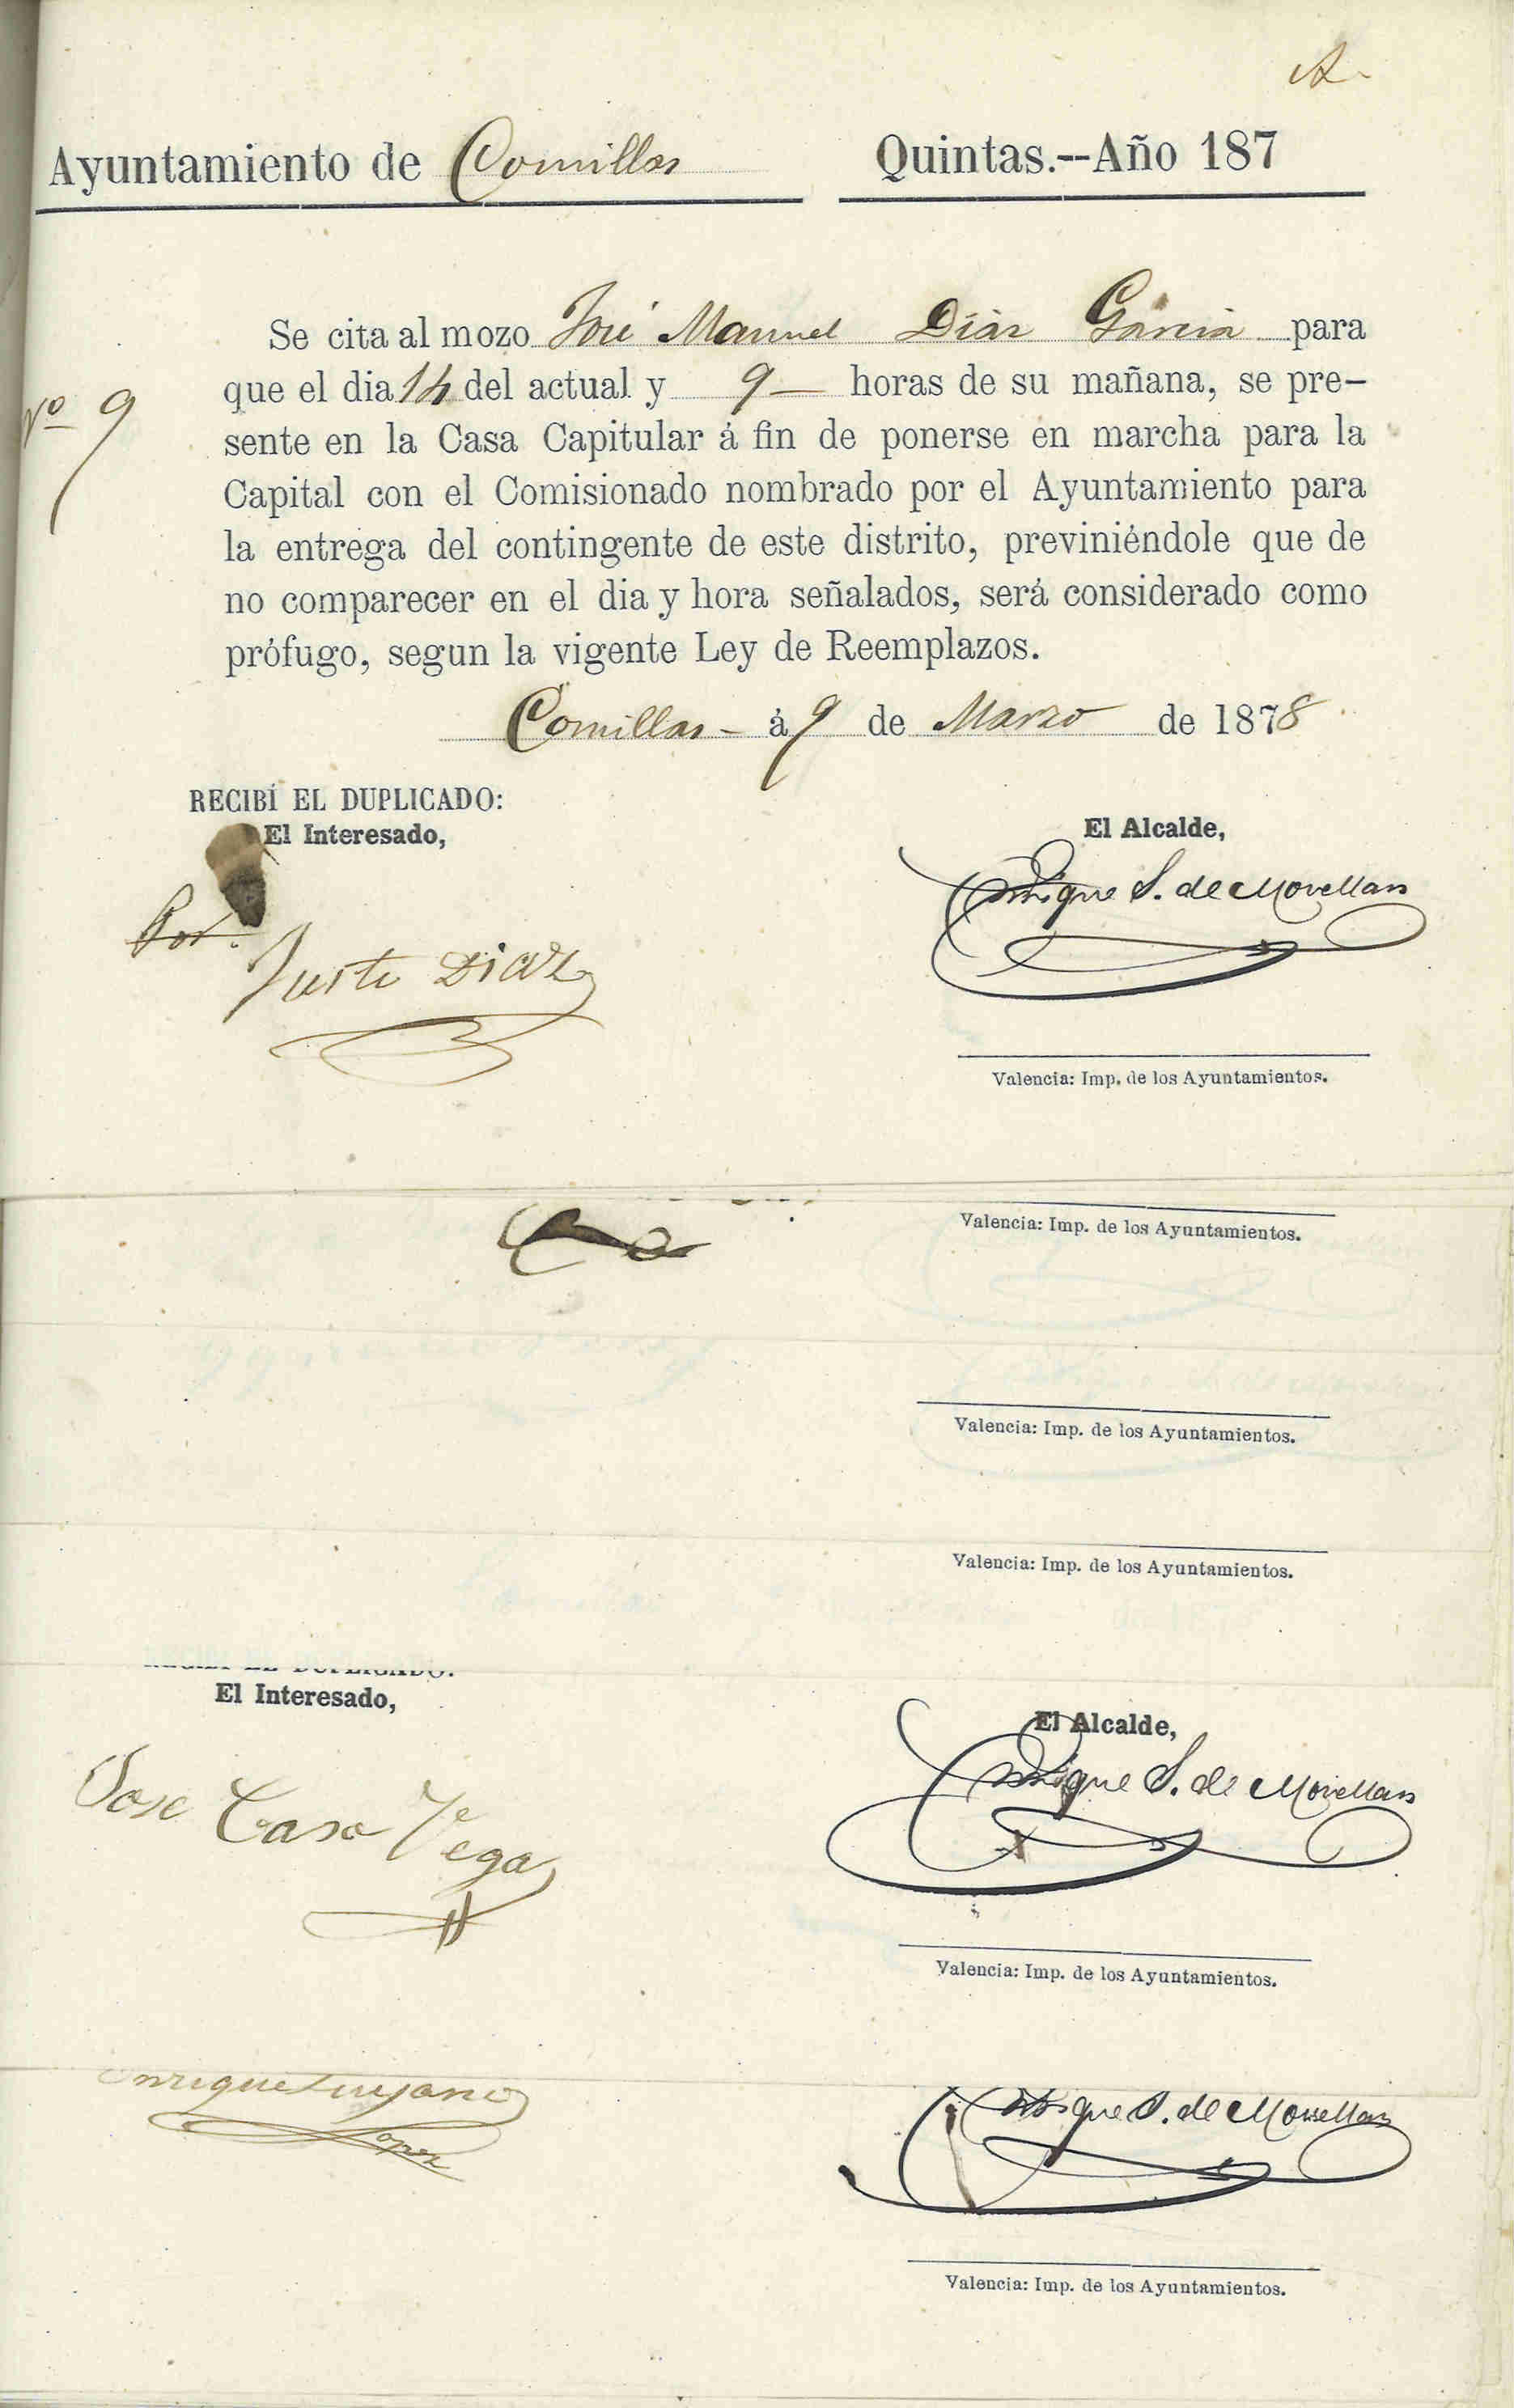 A
Ayuntamiento de Comillas Quintas.--Año 187
Se cita al mozo José Manuel Diaz Garcia para
Nº 9
que el dia 14 del actual y 9 — horas de su mañana, se pre-
sente en la Casa Capitular á fin de ponerse en marcha para la
Capital con el Comisionado nombrado por el Ayuntamiento para
la entrega del contingente de este distrito, previniéndole que de
no comparecer en el dia y hora señalados, será considerado como
prófugo, segun la vigente Ley de Reemplazos.
Comillas - á 9 de Marzo de 1878
RECIBÍ EL DUPLICADO:
El Interesado,
El Alcalde,
Enrique S. de Movellan
Por
Justo Diaz
Valencia: Imp. de los Ayuntamientos.
Valencia: Imp. de los Ayuntamientos.
Valencia: Imp. de los Ayuntamientos.
Valencia: Imp. de los Ayuntamientos.
RECIBÍ EL DUPLICADO:
El Interesado,
El Alcalde,
Enrique S. de Movellan
Jose Caso Vega
Valencia: Imp. de los Ayuntamientos.
Enrique
Lopez
Enrique S. de Movellan
Valencia: Imp. de los Ayuntamientos.